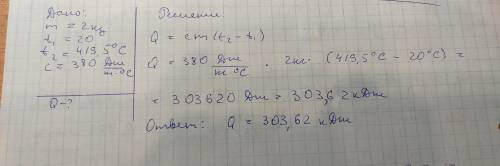 Дано:
m = 2кг
t₁ = 20
t₂ = 419,5°C
c = 380 Дж/m·°C
Q-?
Решение
Q = cm(t₂ - t₁)
Q = 380 Дж/m°C · 2кг · (419,5°C - 20°C) =
= 303620 Дж = 303,62 кДж
Ответ: Q = 303,62 кДж